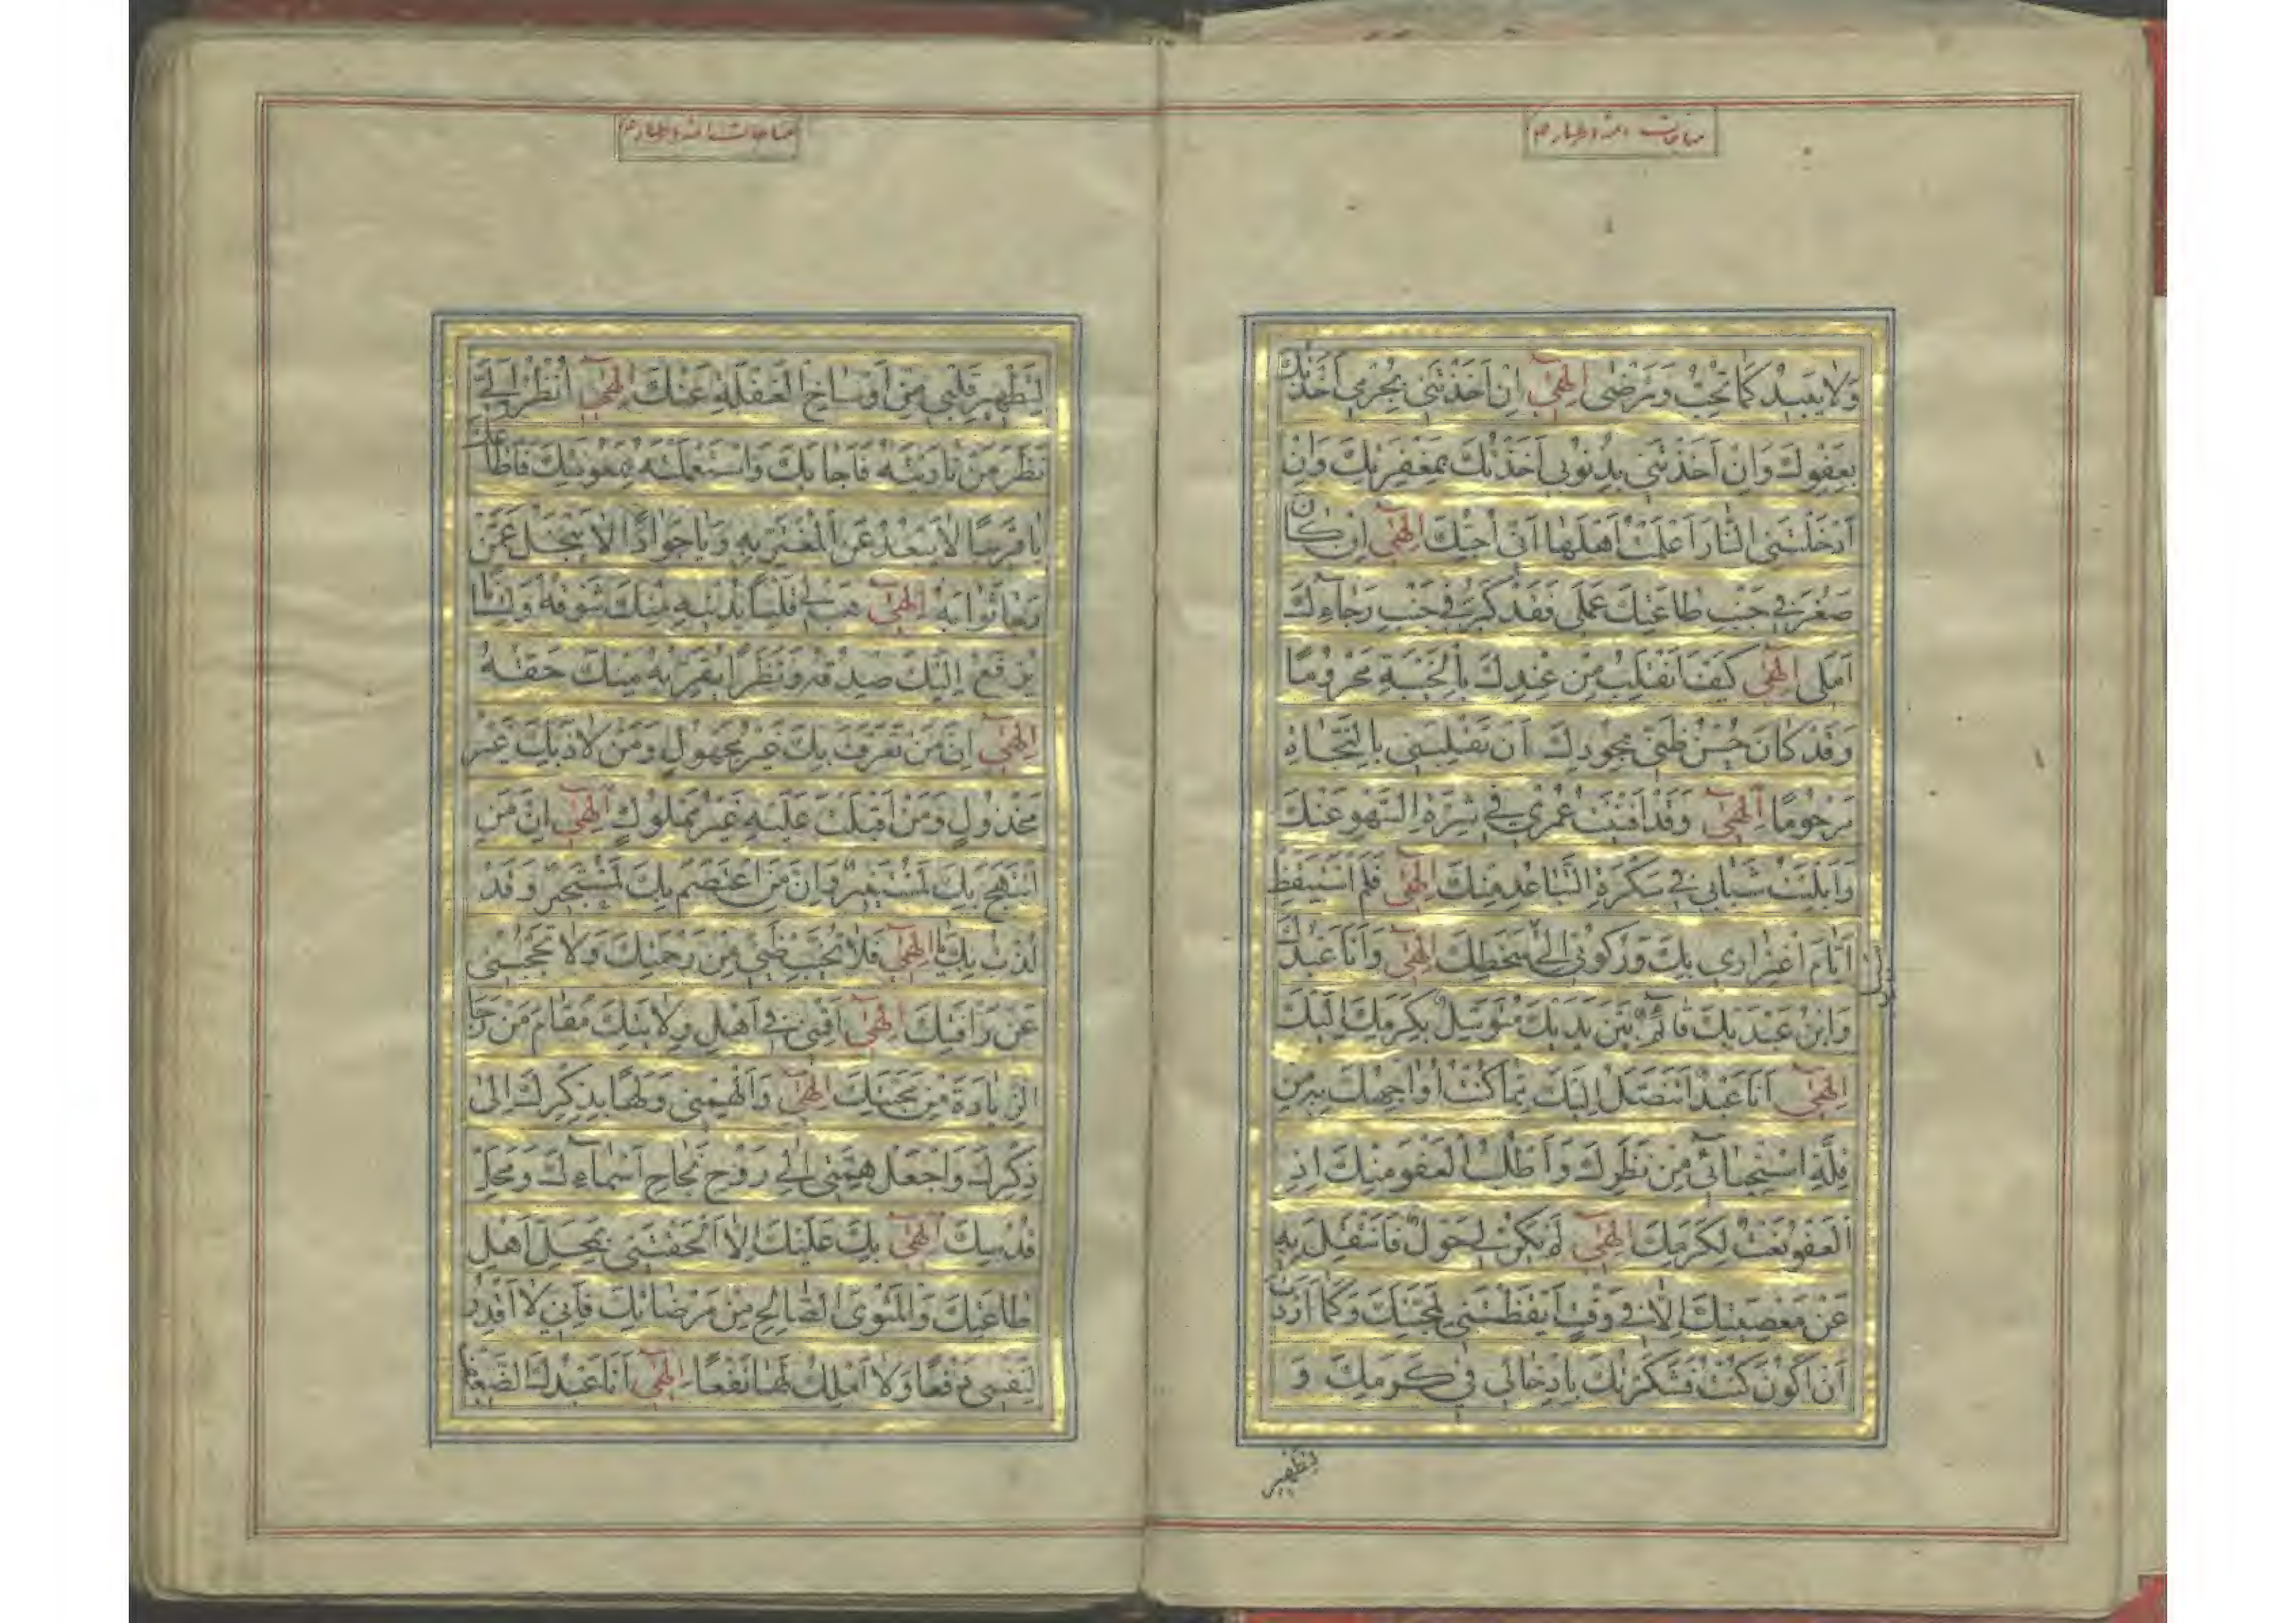 مناجات ائمه اطهار ع
وَلَا يَبِيدُ كَمَا تُحِبُّ وَتَرْضى اِلهى اِنْ اَخَذْتَنى بِجُرْمى اَخَذْتُكَ
بِعَفْوِكَ وَاِنْ اَخَذْتَنى بِذُنُوبى اَخَذْتُكَ بِمَغْفِرَتِكَ وَاِنْ
اَدْخَلْتَنِى النَّارَ اَعْلَمْتُ اَهْلَهَا اَنّى اُحِبُّكَ اِلهى اِنْ كَانَ
صَغُرَ فى جَنْبِ طَاعَتِكَ عَمَلى فَقَدْ كَبُرَ فى جَنْبِ رَجَاءِكَ
اَمَلى اِلهى كَيْفَ اَنْقَلِبُ مِنْ عِنْدِكَ بِالْخَيْبَةِ مَحْرُومًا
وَقَدْ كَانَ حُسْنُ ظَنّى بِجُودِكَ اَنْ تَقْلِبَنى بِالنَّجَاةِ
مَرْحُومًا اِلهى وَقَدْ اَفْنَيْتُ عُمْرى فى شِرَّةِ السَّهْوِ عَنْكَ
وَاَبْلَيْتُ شَبَابى فى سَكْرَةِ التَّبَاعُدِ مِنْكَ اِلهى فَلَمْ اَسْتَيْقِظْ
اَيَّامَ اغْتِرَارى بِكَ وَرُكُونى اِلى سَخَطِكَ اِلهى وَاَنَا عَبْدُكَ
وَابْنُ عَبْدَيْكَ قَائِمٌ بَيْنَ يَدَيْكَ مُتَوَسِّلٌ بِكَرَمِكَ اِلَيْكَ
اِلهى اَنَا عَبْدٌ اَتَنَصَّلُ اِلَيْكَ مِمَّا كُنْتُ اُوَاجِهُكَ بِهِ مِنْ
قِلَّةِ اسْتِحْيَائى مِنْ نَظَرِكَ وَاَطْلُبُ الْعَفْوَ مِنْكَ اِذِ
الْعَفْوُ نَعْتٌ لِكَرَمِكَ اِلهى لَمْ يَكُنْ لى حَوْلٌ فَاَنْتَقِلَ بِهِ
عَنْ مَعْصِيَتِكَ اِلَّا فى وَقْتٍ اَيْقَظْتَنى لِمَحَبَّتِكَ وَكَمَا اَرَدْتَ
اَنْ اَكُونَ كُنْتُ فَشَكَرْتُكَ بِاِدْخَالى فى كَرَمِكَ وَ
لِتَطْهِيرِ
مناجات ائمه اطهار ع
لِتَطْهِيرِ قَلْبى مِنْ اَوْسَاخِ الْغَفْلَةِ عَنْكَ اِلهى اُنْظُرْ اِلَىَّ
نَظَرَ مَنْ نَادَيْتَهُ فَاَجَابَكَ وَاسْتَعْمَلْتَهُ بِمَعُونَتِكَ فَاَطَاعَكَ
يَا قَرِيبًا لَا يَبْعُدُ عَنِ الْمُغْتَرِّ بِهِ وَيَا جَوَادًا لَا يَبْخَلُ عَمَّنْ
رَجَا ثَوَابَهُ اِلهى هَبْ لى قَلْبًا يُدْنيهِ مِنْكَ شَوْقُهُ وَلِسَانًا
يُرْفَعُ اِلَيْكَ صِدْقُهُ وَنَظَرًا يُقَرِّبُهُ مِنْكَ حَقُّهُ
اِلهى اِنَّ مَنْ تَعَرَّفَ بِكَ غَيْرُ مَجْهُولٍ وَمَنْ لَاذَ بِكَ غَيْرُ
مَخْذُولٍ وَمَنْ اَقْبَلْتَ عَلَيْهِ غَيْرُ مَمْلُوكٍ اِلهى اِنَّ مَنِ
انْتَهَجَ بِكَ لَمُسْتَنِيرٌ وَاِنَّ مَنِ اعْتَصَمَ بِكَ لَمُسْتَجِيرٌ وَقَدْ
لُذْتُ بِكَ يَا اِلهى فَلَا تُخَيِّبْ ظَنّى مِنْ رَحْمَتِكَ وَلَا تَحْجُبْنى
عَنْ رَاْفَتِكَ اِلهى اَقِمْنى فى اَهْلِ وِلَايَتِكَ مُقَامَ مَنْ رَجَا
الزِّيَادَةَ مِنْ مَحَبَّتِكَ اِلهى وَاَلْهِمْنى وَلَهًا بِذِكْرِكَ اِلى
ذِكْرِكَ وَاجْعَلْ هِمَّتى اِلى رَوْحِ نَجَاحِ اَسْمَاءِكَ وَمَحَلِّ
قُدْسِكَ اِلهى بِكَ عَلَيْكَ اِلَّا اَلْحَقْتَنى بِمَحَلِّ اَهْلِ
طَاعَتِكَ وَالْمَثْوَى الصَّالِحِ مِنْ مَرْضَاتِكَ فَاِنّى لَا اَقْدِرُ
لِنَفْسى دَفْعًا وَلَا اَمْلِكُ لَهَا نَفْعًا اِلهى اَنَا عَبْدُكَ الضَّعِيفُ